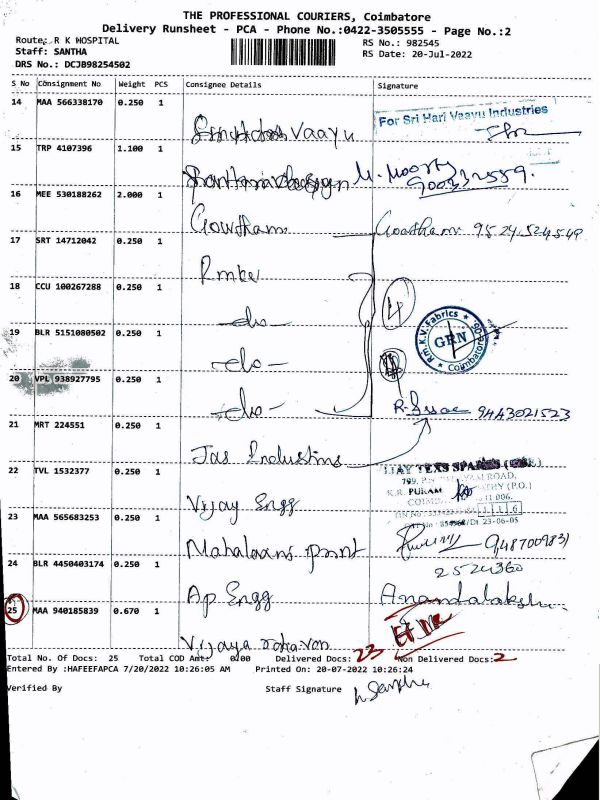 THE PROFESSIONAL COURIERS, Coimbatore
Delivery Runsheet - PCA - Phone No.:0422-3505555 - Page No.:2
Route: R K HOSPITAL
RS No.: 982545
Staff: SANTHA
RS Date: 20-Jul-2022
DRS No.: DCJB98254502
S No Consignment No Weight PCS Consignee Details Signature
14 MAA 566338170 0.250 1
For Sri Hari Vaayu Industries
Vaayu
15 TRP 4107396 1.100 1
M. Moorthy
16 MEE 530188262 2.000 1
Gowtham Gowtham 9524524549
17 SRT 14712042 0.250 1
Rmkv
18 CCU 100267288 0.250 1
-do-
4
Rm.K.V. Fabrics * Coimbatore
GRN
19 BLR 5151080502 0.250 1
-do-
20 VPL 938927795 0.250 1
-do-
21 MRT 224551 0.250 1
Jas Industries
22 TVL 1532377 0.250 1
VIJAY TEXS SPARES
K.R. PURAM
Vijay Engg
23 MAA 565683253 0.250 1
Mahalaxmi print
24 BLR 4450403174 0.250 1
2524360
Ap Engg Anandalakshmi
25 MAA 940185839 0.670 1
Vijaya
Total No. Of Docs: 25 Total COD Amt: 0.00 Delivered Docs: 23 Non Delivered Docs: 2
Entered By :HAFEEFAPCA 7/20/2022 10:26:05 AM Printed On: 20-07-2022 10:26:24
Verified By Staff Signature